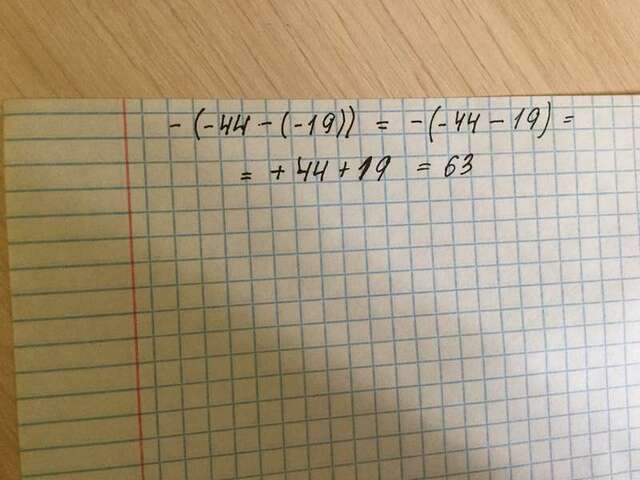 - (-44 - (-19)) = -(-44 - 19) =
= + 44 + 19 = 63